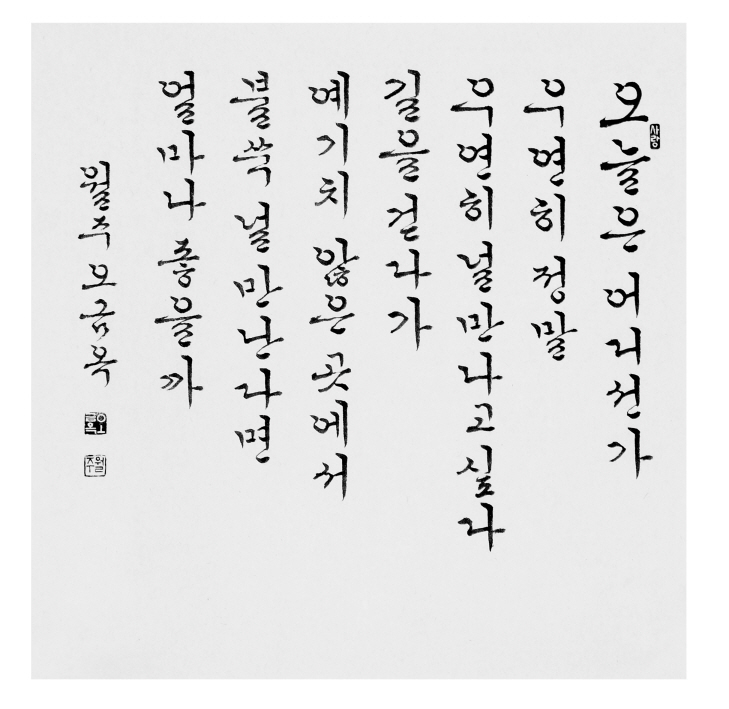 사랑
오늘은 어디선가
우연히 정말
우연히 널 만나고 싶다
길을 걷다가
예기치 않은 곳에서
불쑥 널 만난다면
얼마나 좋을까
월주 오금옥
오금옥
월주